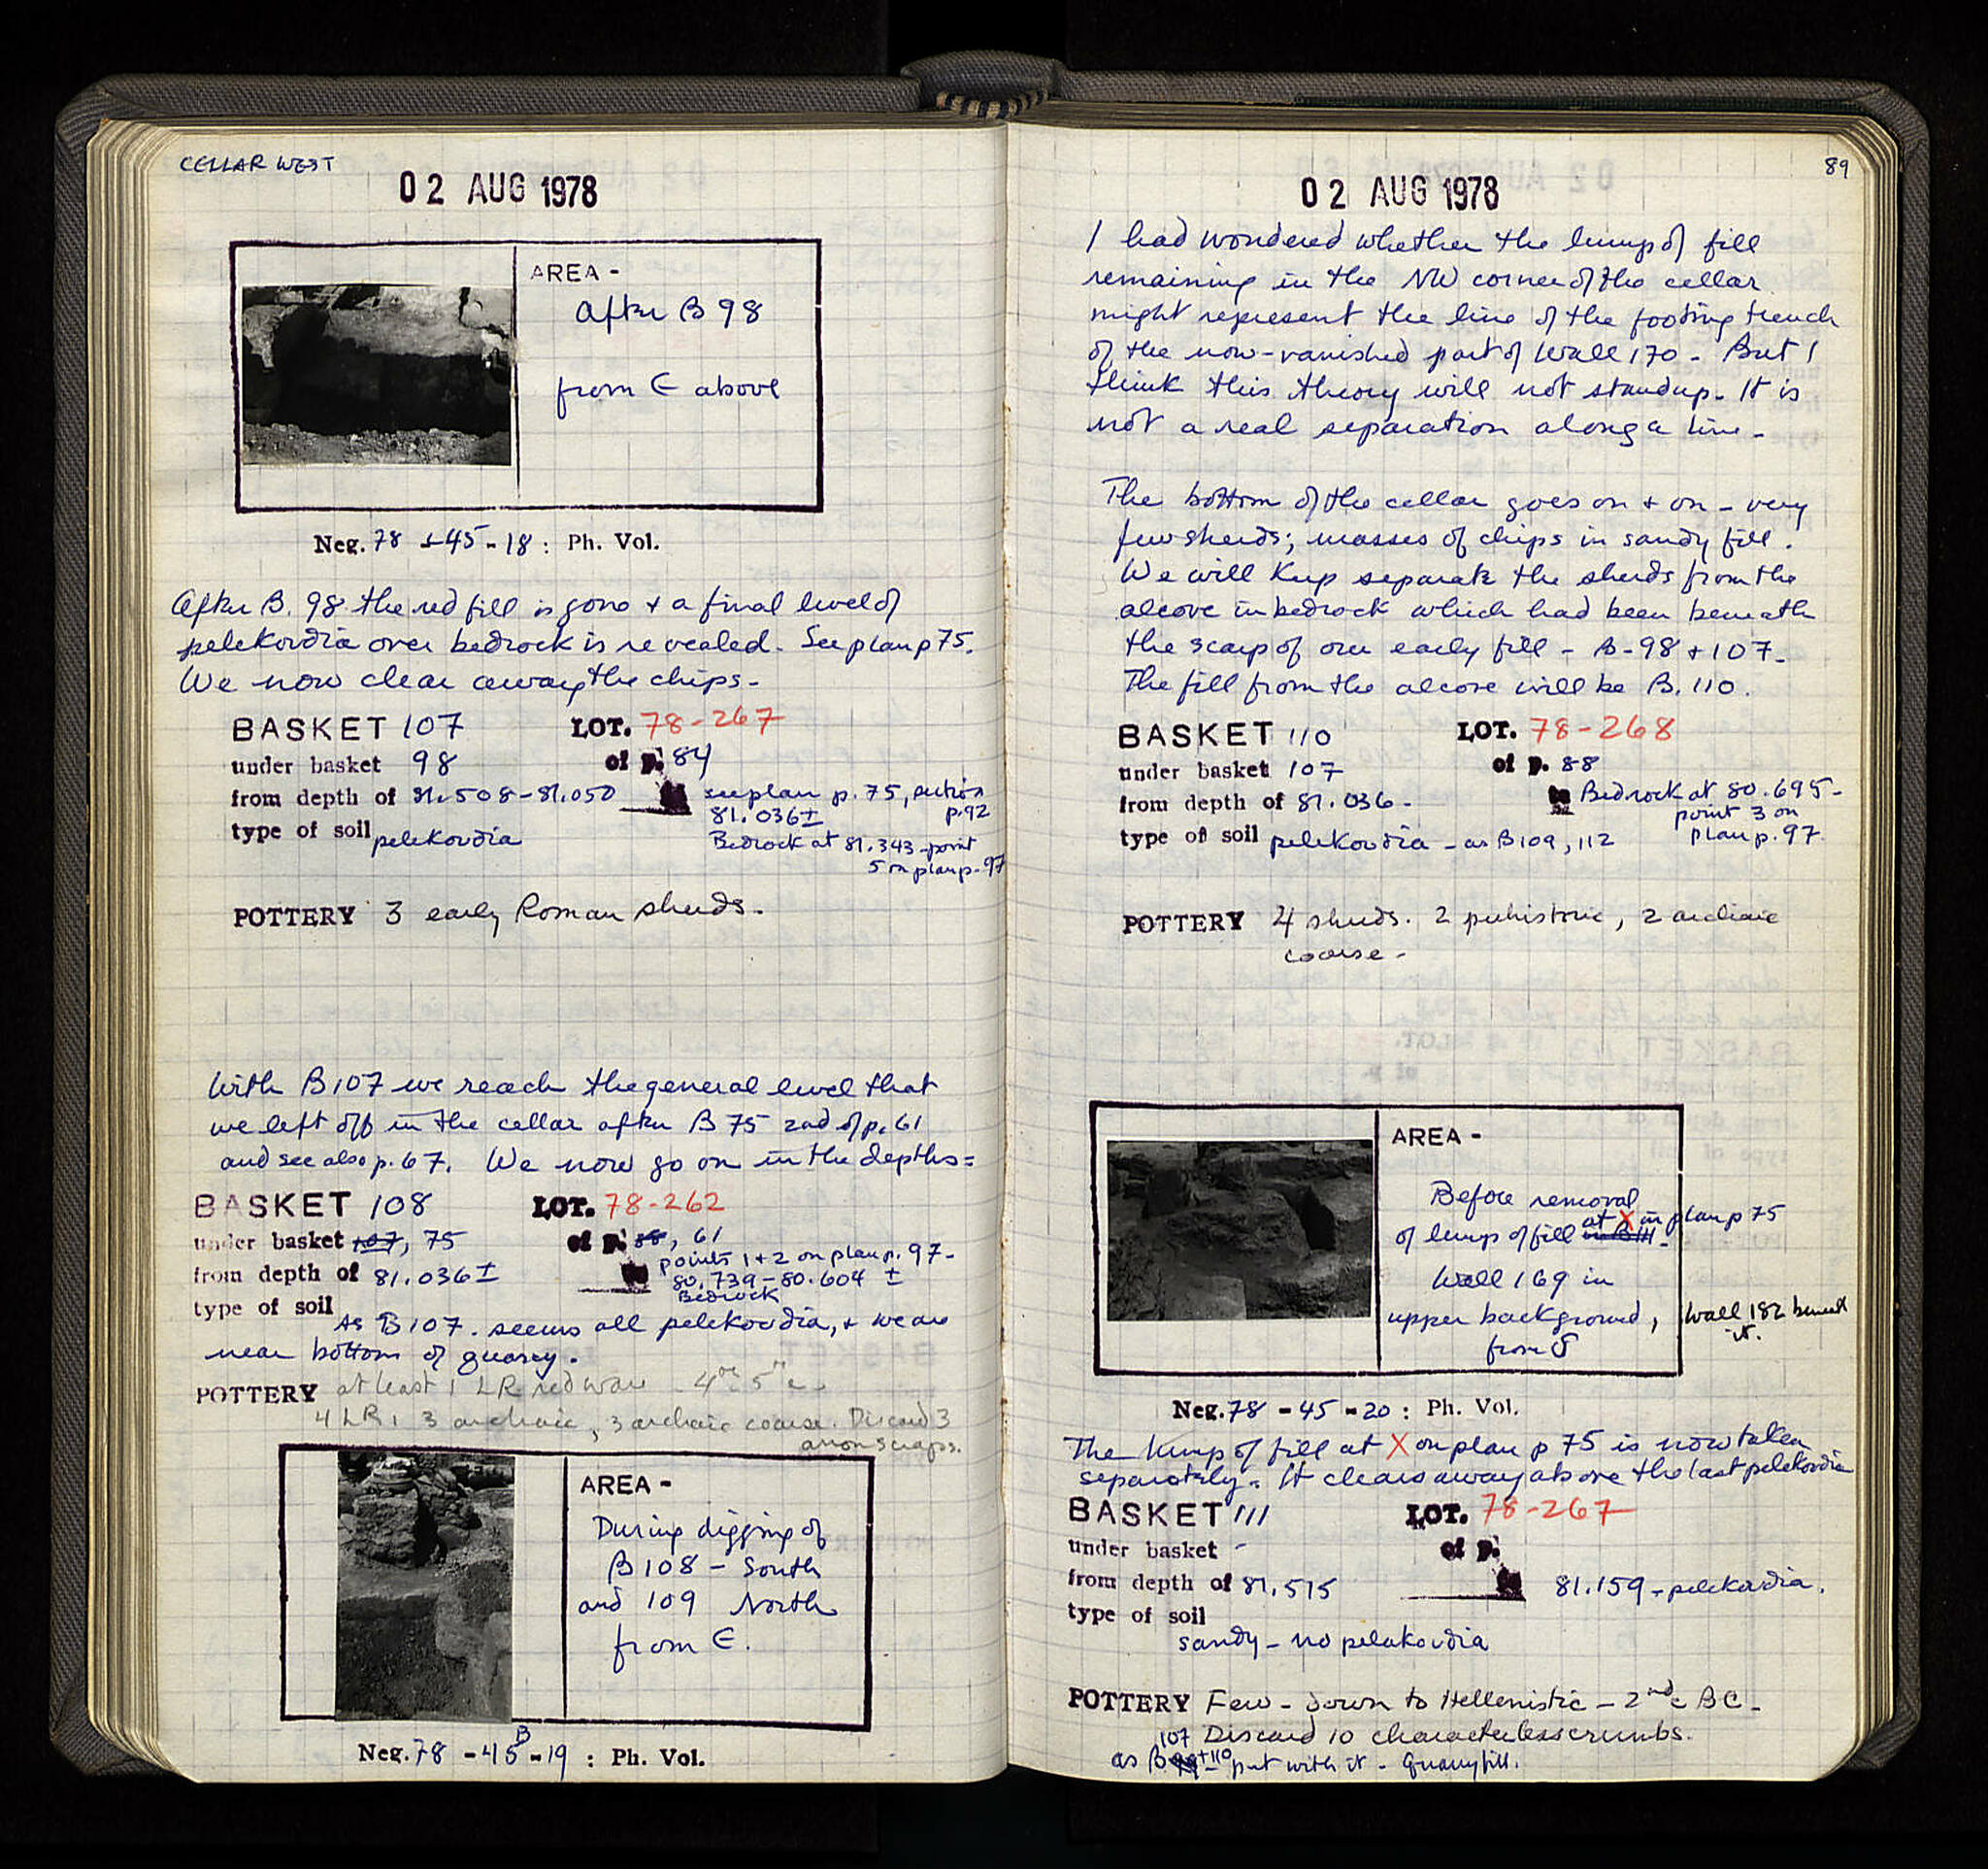 CELLAR WEST
02 AUG 1978
AREA -
After B 98
from E above
Neg. 78 - 45 - 18 : Ph. Vol.
After B. 98 the red fill is gone + a final level of
pelekoudia over bedrock is revealed. See plan p 75.
We now clear away the chips -
BASKET 107 LOT. 78-267
under basket 98 of p. 84
from depth of 81.508-81.050 see plan p. 75, section p. 92
81.036±
type of soil pelekoudia Bedrock at 81.343 - point
5 on plan p. 97
POTTERY 3 early Roman sherds.
With B107 we reach the general level that
we left off in the cellar after B 75 2nd of p. 61
and see also p. 67. We now go on in the depths =
BASKET 108 LOT. 78-262
under basket 107, 75 of p. 88, 61
points 1+2 on plan p. 97-
from depth of 81.036 ± 80.739-80.604 ±
Bedrock
type of soil
As B107. seems all pelekoudia, + we are
near bottom of quarry.
POTTERY at least 1 LR red ware - 4th 5th c.
4 LR, 3 archaic, 3 archaic coarse. Discard 3
scraps.
AREA -
During digging of
B108 - South
and 109 North
from E.
Neg. 78 - 45 B - 19 : Ph. Vol.
89
02 AUG 1978
I had wondered whether the lump of fill
remaining in the NW corner of the cellar
might represent the line of the footing trench
of the now-vanished part of Wall 170 - But I
think this theory will not stand up. It is
not a real separation along a line -
The bottom of the cellar goes on + on - very
few sherds; masses of chips in sandy fill.
We will keep separate the sherds from the
alcove in bedrock which had been beneath
the scarp of our early fill - B-98 + 107.
The fill from the alcove will be B. 110.
BASKET 110 LOT. 78-268
under basket 107 of p. 88
from depth of 81.036 - to Bedrock at 80.695 -
point 3 on
plan p. 97.
type of soil pelekoudia - as B109, 112
POTTERY 4 sherds. 2 prehistoric, 2 archaic
coarse -
AREA -
Before removal
of lump of fill at X in plan p 75
in B111 -
Wall 169 in
upper background, Wall 182 beneath
it.
from S
Neg. 78 - 45 - 20 : Ph. Vol.
The lump of fill at X on plan p 75 is now taken
separately. It clears away above the last pelekoudia
BASKET 111 LOT. 78-267
under basket - of p.
from depth of 81.515 81.159 - pelekoudia.
type of soil
sandy - no pelekoudia
POTTERY Few - down to Hellenistic - 2nd c BC -
Discard 10 characterless crumbs.
107
as B + 110 put with it - Quarry fill.